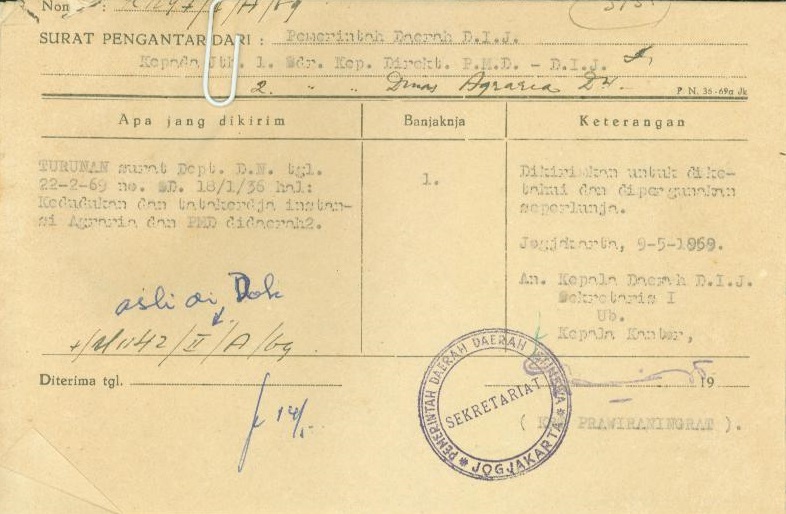 SURAT PENGANTAR DARI : Pemerintah Daerah D.I.J.
Kepada Jth. 1. Sdr. Kep. Direkt. P.M.D. - D.I.J.
2. " " Dinas Agraria
P. N. 36-69a Jk
Apa jang dikirim Banjaknja Keterangan
TURUNAN surat Dept. D.N. tgl.
22-2-69 no. SD. 18/1/36 hal:
Kedudukan dan tatakerdja instan-
si Agraria dan PMD didaerah2.
1.
Dikirimkan untuk dike-
tahui dan dipergunakan
seperlunja.
Jogjakarta, 9-5-1969.
An. Kepala Daerah D.I.J.
Sekretaris I
Ub.
Kepala Kantor,
asli di Dok
/II/A/69
Diterima tgl.
14/5
19
PEMERINTAH DAERAH DAERAH ISTIMEWA
SEKRETARIAT
JOGJAKARTA
( PRAWIRANINGRAT ).